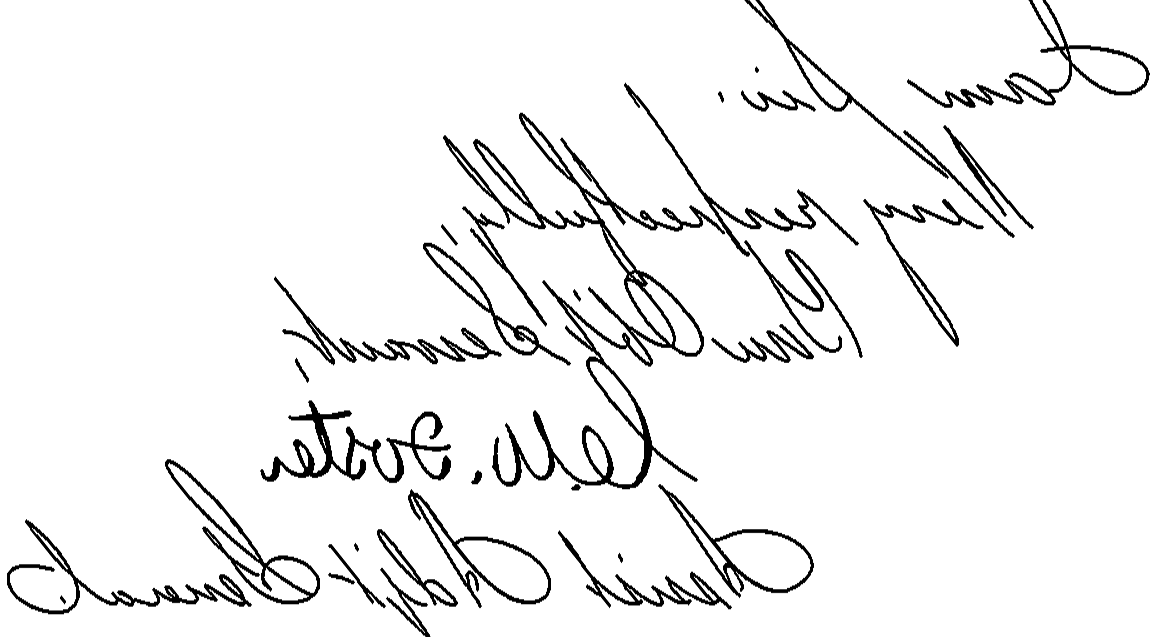 I am Sir.
Very respectfully,
Your Obt. Servant,
C. W. Foster
Assist Adjt General.